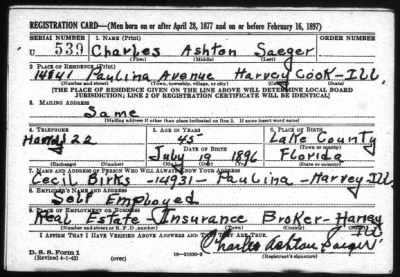 REGISTRATION CARD—(Men born on or after April 28, 1877 and on or before February 16, 1897)
SERIAL NUMBER 1. NAME (Print) ORDER NUMBER
U 539 Charles Ashton Saeger
(First) (Middle) (Last)
2. PLACE OF RESIDENCE (Print)
14841 Paulina Avenue Harvey Cook-Ill.
(Number and street) (Town, township, village, or city) (County) (State)
[THE PLACE OF RESIDENCE GIVEN ON THE LINE ABOVE WILL DETERMINE LOCAL BOARD
JURISDICTION; LINE 2 OF REGISTRATION CERTIFICATE WILL BE IDENTICAL]
3. MAILING ADDRESS
Same
[Mailing address if other than place indicated on line 2. If same insert word same]
4. TELEPHONE 5. AGE IN YEARS 6. PLACE OF BIRTH
45 Lake County
DATE OF BIRTH (Town or county)
July 19 1896 Florida
(Exchange) (Number) (Mo.) (Day) (Yr.) (State or country)
7. NAME AND ADDRESS OF PERSON WHO WILL ALWAYS KNOW YOUR ADDRESS
Cecil Birks -14931- Paulina-Harvey Ill.
8. EMPLOYER'S NAME AND ADDRESS
Self Employed
9. PLACE OF EMPLOYMENT OR BUSINESS
Real Estate Insurance Broker-Harvey
Ill
(Number and street or R. F. D. number) (Town) (County) (State)
I AFFIRM THAT I HAVE VERIFIED ABOVE ANSWERS AND THAT THEY ARE TRUE.
D. S. S. Form 1
(Revised 4-1-42) (over) Charles Ashton Saeger